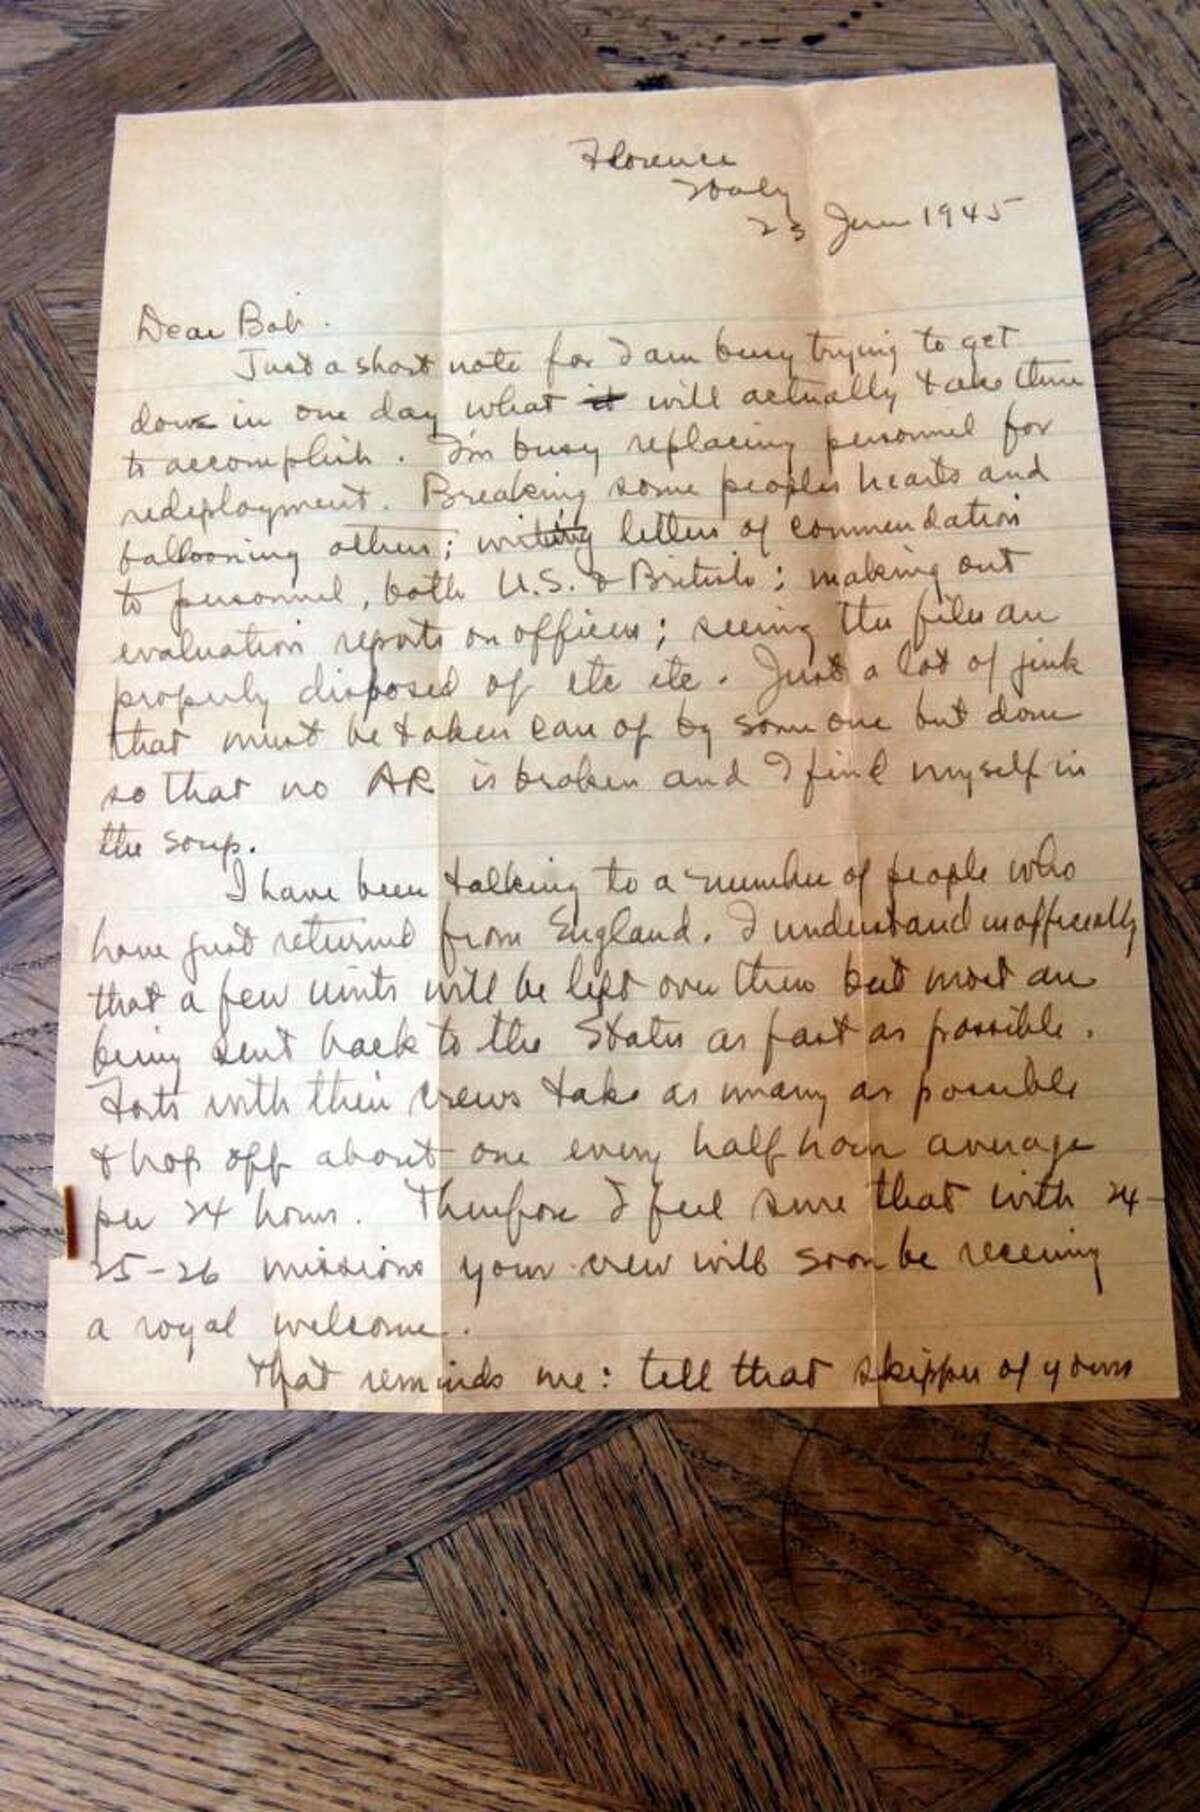 Florence
Italy
23 June 1945
Dear Bob.
Just a short note for I am busy trying to get
done in one day what it will actually take three
to accomplish. I'm busy replacing personnel for
redeployment. Breaking some peoples hearts and
ballooning others; writing letters of commendation
to personnel, both U.S. & British; making out
evaluation reports on officers; seeing the files are
properly disposed of etc etc. Just a lot of junk
that must be taken care of by some one but done
so that no AR is broken and I find myself in
the soup.
I have been talking to a number of people who
have just returned from England. I understand inofficially
that a few units will be left over there but most are
being sent back to the States as fast as possible.
Forts with their crews take as many as possible
& hop off about one every half hour average
per 24 hours. Therefore I feel sure that with 24-
25-26 missions your crew will soon be receiving
a royal welcome.
That reminds me: tell that skipper of yours